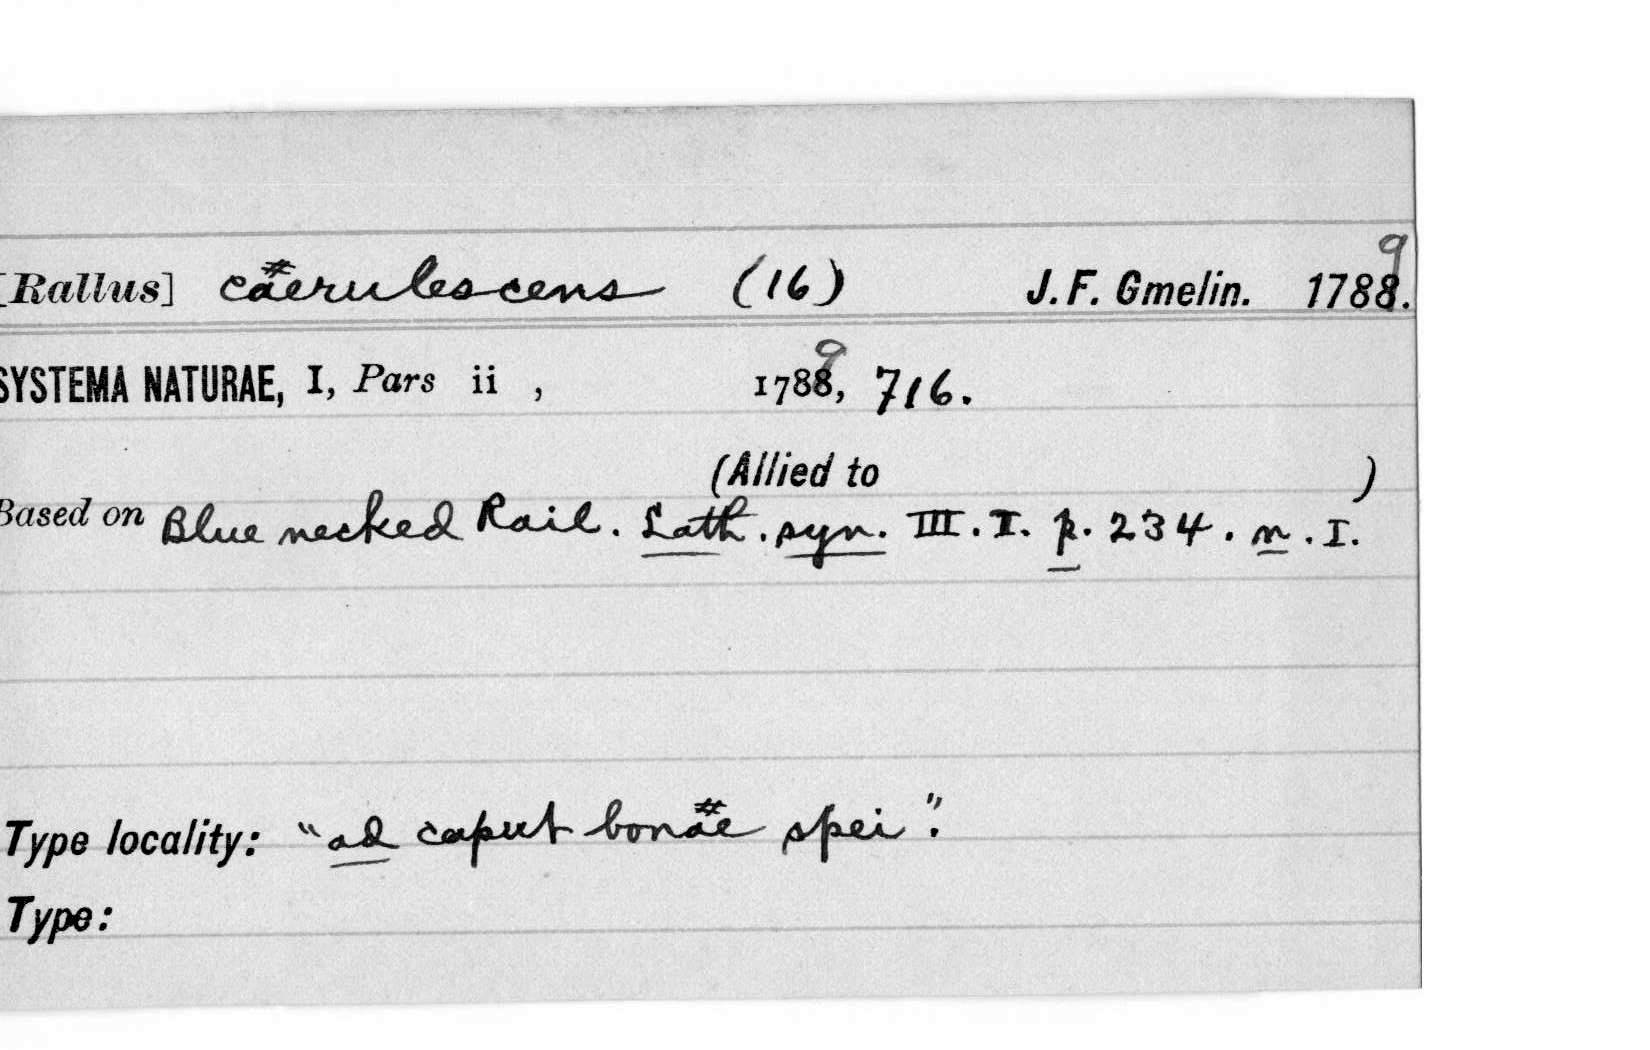 [Rallus] caerulescens (16) J. F. Gmelin. 1789.
SYSTEMA NATURAE, I, Pars ii , 1789, 716.
(Allied to )
Based on Blue necked Rail. Lath. syn. III. I. p. 234. n. I.
Type locality: "ad caput bonae spei".
Type: